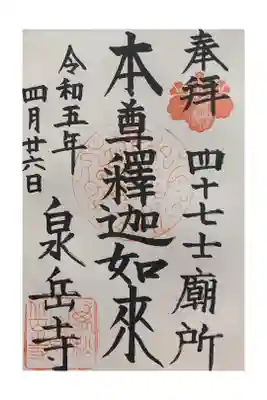 奉拝
四十七士廟所
本尊釋迦如來
令和五年
四月廿六日
泉岳寺